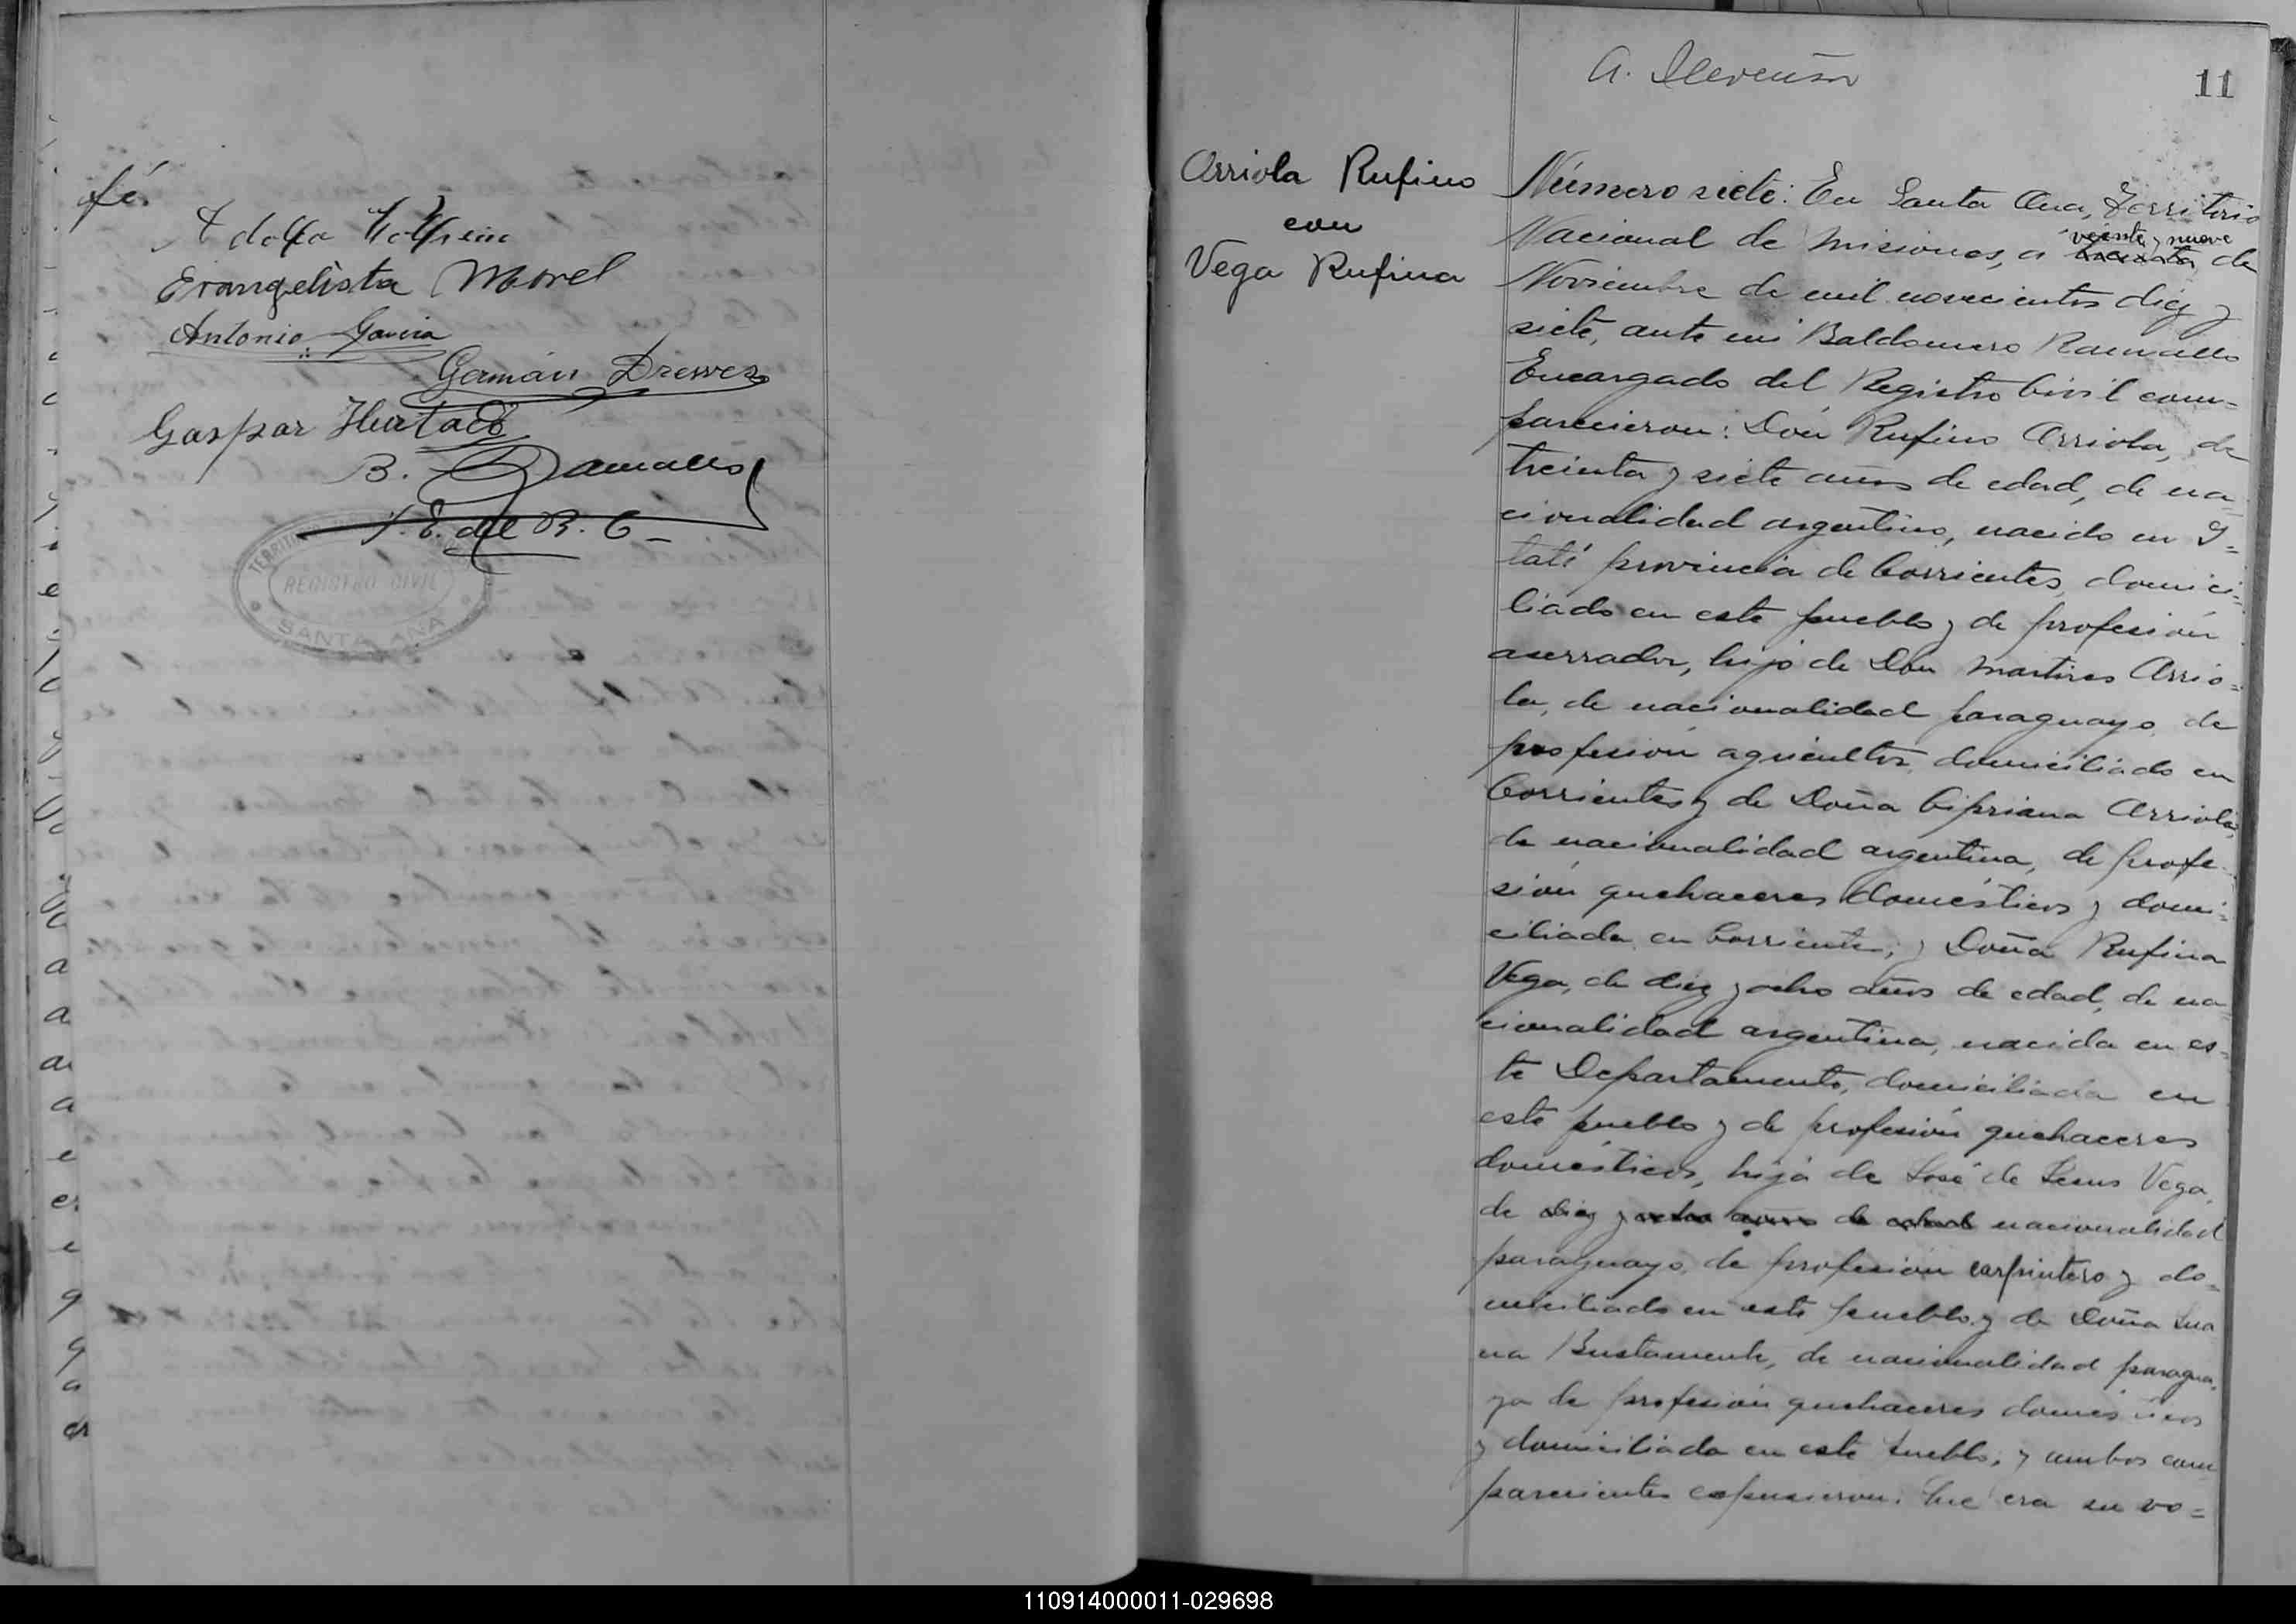 fé.
Evangelista Morel
Antonio Garcia
Germán Drewes
Gaspar Hurtado
B. Ramallo
E. del R. C.
TERRITORIO
REGISTRO CIVIL
SANTA ANA
11
Arriola Rufino
con
Vega Rufina
Número siete: En Santa Ana, Territorio
veinte y nueve
Nacional de Misiones, a treinta de
Noviembre de mil novecientos diez y
siete, ante mi Baldomero Ramallo
Encargado del Registro Civil com=
parecieron: Dón Rufino Arriola, de
treinta y siete años de edad, de na=
cionalidad argentino, nacido en I=
tatí provincia de Corrientes, domici=
liado en este pueblo y de profesión
aserrador, hijo de Don Martires Arrio=
la, de nacionalidad paraguayo, de
profesión agricultor domiciliado en
Corrientes y de Doña Cipriana Arriola,
de nacionalidad argentina, de profe=
sión quehaceres domésticos y domi=
ciliada en Corrientes; y Doña Rufina
Vega, de diez y ocho años de edad, de na=
cionalidad argentina, nacida en es=
te Departamento, domiciliada en
este pueblo y de profesión quehaceres
domésticos, hija de José de Jesus Vega,
de diez y ocho años de edad nacionalidad
paraguayo, de profesión carpintero y do=
miciliado en este pueblo y de Doña Jua
na Bustamente, de nacionalidad paragua
ya de profesión quehaceres domésticos
y domiciliada en este pueblo; y ambos com
parecientes expusieron: Que era su vo=
110914000011-029698